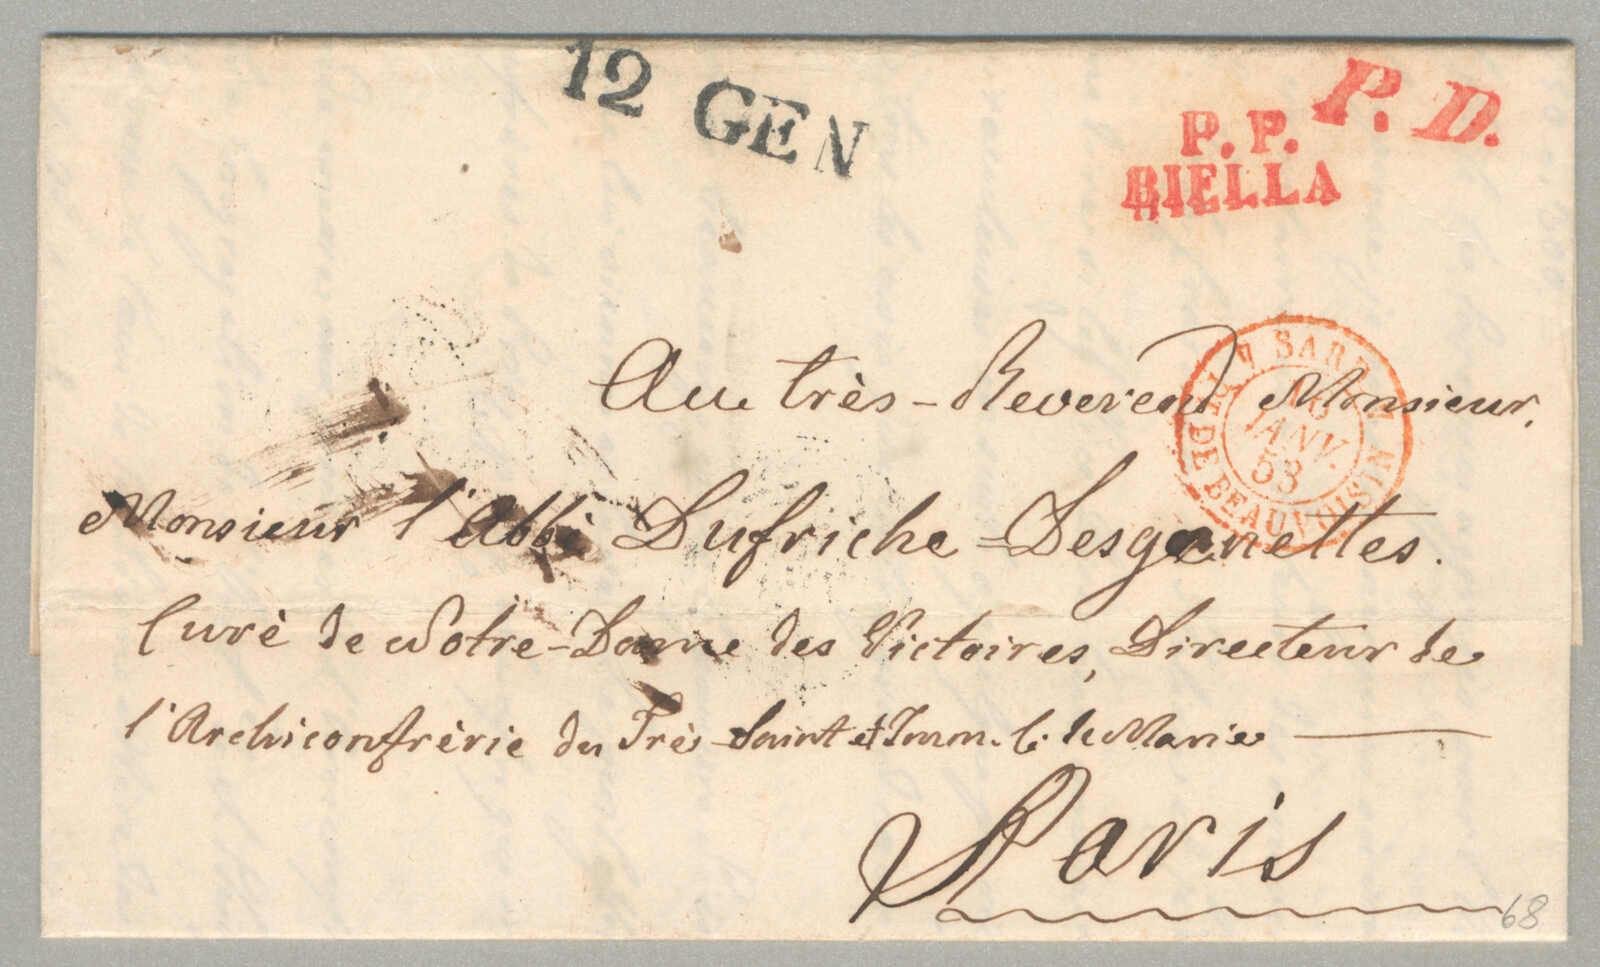 12 GEN
P. D.
P. P.
BIELLA
SARD
JANV.
53
Pt DE BEAUVOISIN
Au très-Reverend Monsieur,
Monsieur l'Abbé Dufriche-Desgenettes.
Curé de Notre-Dame des Victoires, Directeur de
l'Archiconfrérie du Très Saint et Imm. C. de Marie
Paris
68